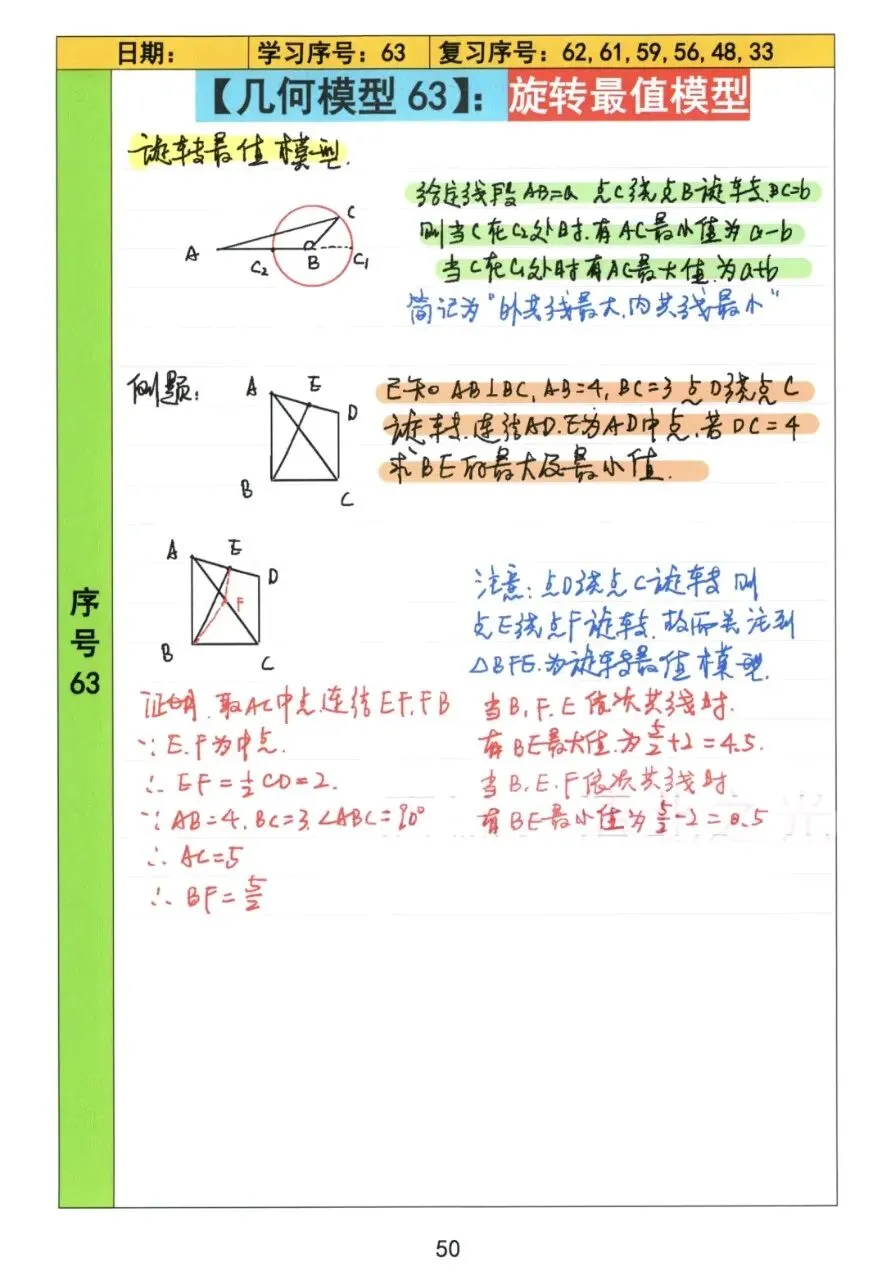 日期: 学习序号: 63 复习序号: 62, 61, 59, 56, 48, 33
【几何模型 63】: 旋转最值模型
旋转最值模型.
给定线段AB=a 点C绕点B旋转.BC=b
则当C在C₂处时.有AC最小值为a-b
当C在C₁处时有AC最大值.为a+b
简记为"外共线最大,内共线最小"
A C₂ B C₁ C
例题:
A E D B C
已知 AB⊥BC, AB=4, BC=3 点D绕点C
旋转.连结AD.E为AD中点.若DC=4
求BE的最大及最小值.
A E D F B C
注意:点D绕点C旋转则
点E绕点F旋转.故而关注到
△BFE.为旋转最值模型.
序号63
证明.取AC中点.连结EF.FB
∵E.F为中点.
∴EF=½CD=2.
∵AB=4.BC=3.∠ABC=90°
∴AC=5
∴BF=5/2
当B.F.E依次共线时.
有BE最大值.为5/2+2=4.5.
当B.E.F依次共线时
有BE最小值为5/2-2=0.5
50